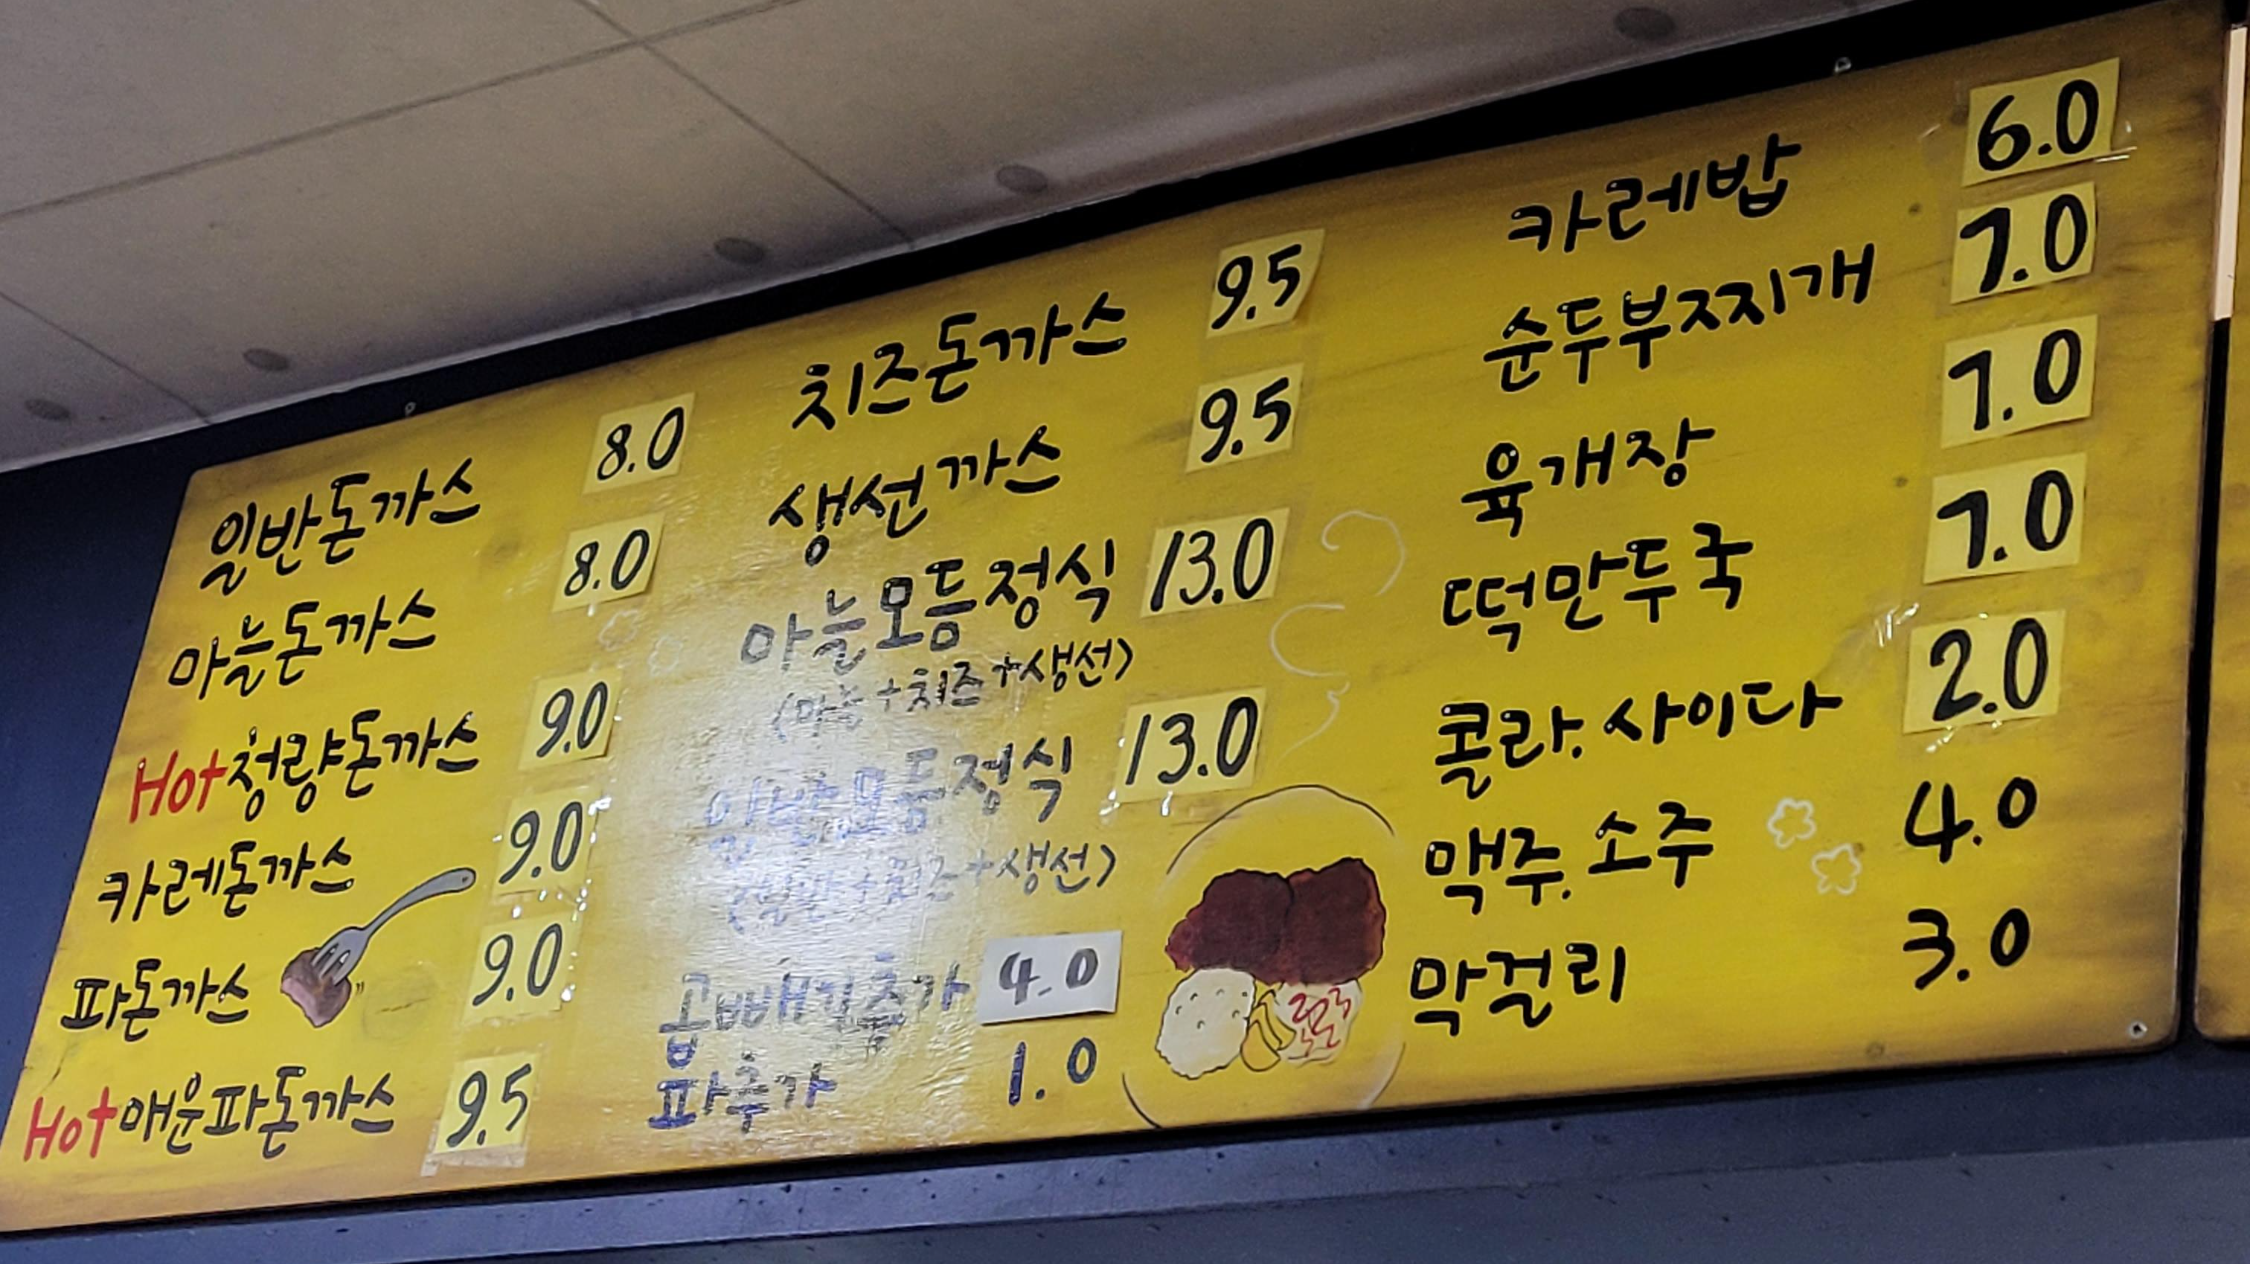 일반돈까스 8.0
마늘돈까스 8.0
Hot청량돈까스 9.0
카레돈까스 9.0
파돈까스 9.0
Hot매운파돈까스 9.5
치즈돈까스 9.5
생선까스 9.5
마늘모듬정식 13.0
(마늘+치즈+생선)
일반모듬정식 13.0
(일반+치즈+생선)
곱빼기추가 4.0
파추가 1.0
카레밥 6.0
순두부찌개 7.0
육개장 7.0
떡만두국 7.0
콜라.사이다 2.0
맥주.소주 4.0
막걸리 3.0